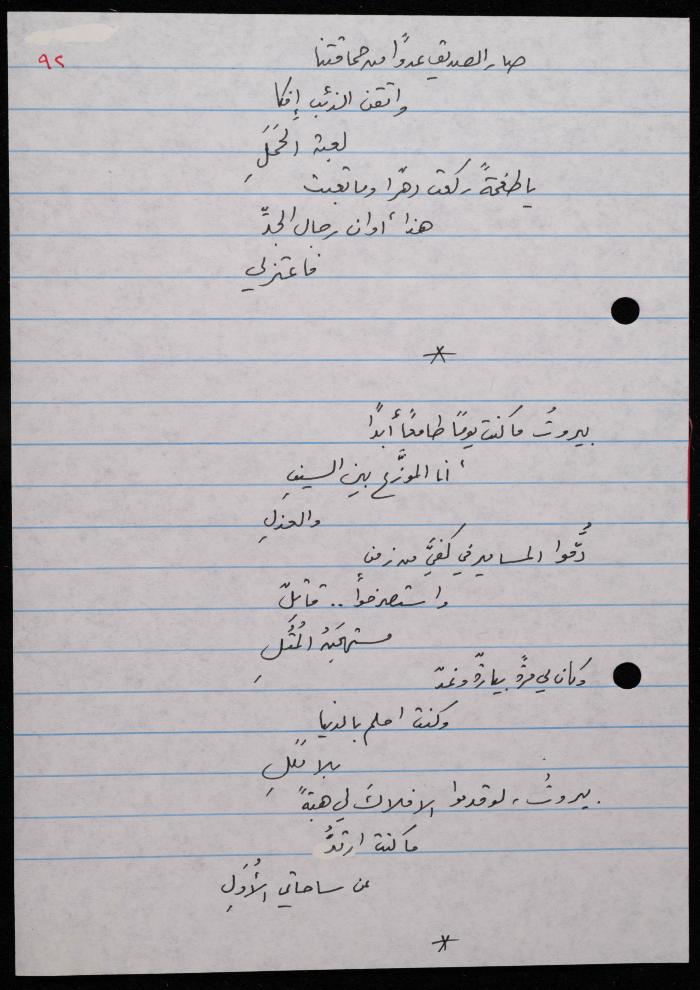 ٩٢
صار الصديق عدوًا من حماقتنا
واتقن الذئب إفكا
لعبة الحَمَلِ
يا طغمةً ركعت دهرًا وما تعبت
هذا أوان رجال الجدِّ
فاعتزلي
*
بيروتُ ما كنت يومًا طامعًا أبدًا
أنا الموزَّع بين السيفِ
والعذلِ
دُقّوا المسامير في كفيَّ من زمن
واستصرخوا .. قاتلٌ
مستهجَنُ المُثُلِ
وكان لي مرةً بيارةٌ وغدٌ
وكنت احلم بالدنيا
بلا
بيروتُ، لو قدموا الافلاكَ لي هبةً
ما كنت ارتدُّ
عن ساحاتي الأُوَلِ
*